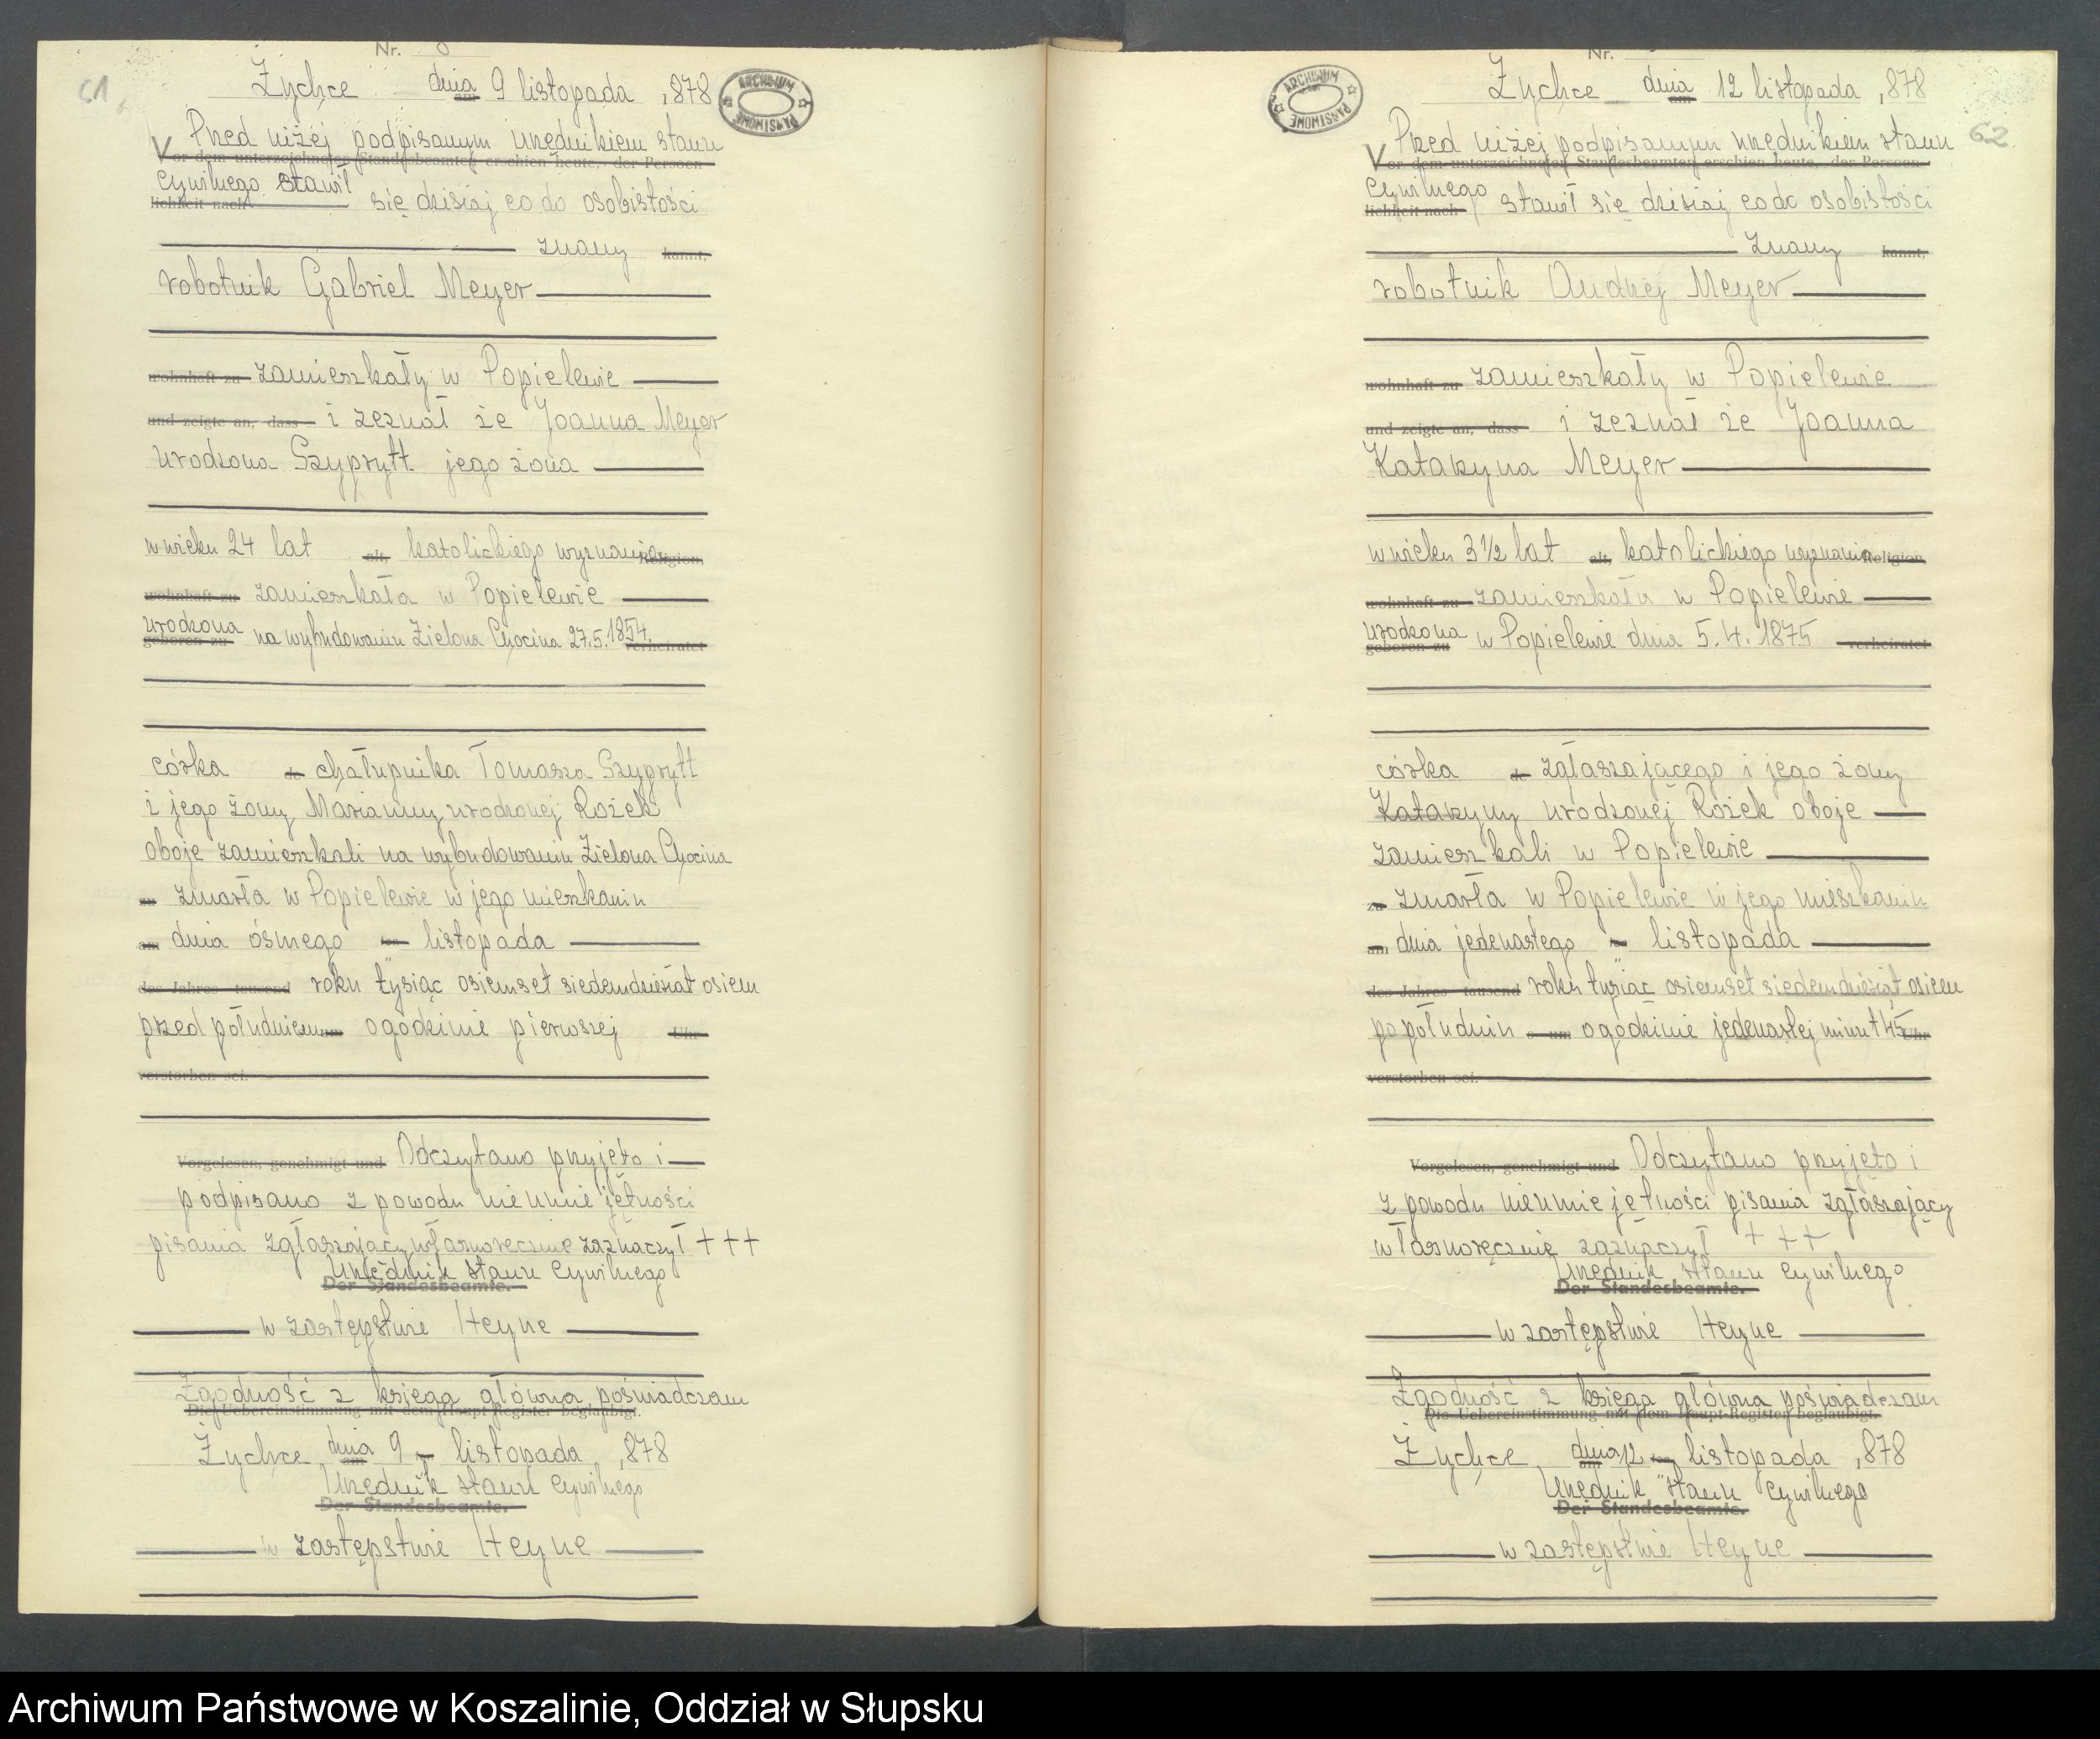 61
Nr.
Zychce dnia 9 listopada 1878
am
ARCHIWUM PAŃSTWOWE
Przed niżej podpisanym urzędnikiem stanu
Vor dem unterzeichneten Standesbeamten erschien heute, der Persoen
cywilnego stawił się dzisiaj co do osobistości
lichkeit nach
znany kannt,
robotnik Gabriel Meyer
wohnhaft zu zamieszkały w Popielewie
und zeigte an, dass i zeznał że Joanna Meyer
urodzona Szyprytt jego żona
w wieku 24 lat alt, katolickiego wyznania Religion,
wohnhaft zu zamieszkała w Popielewie
urodzona na wybudowaniu Zielona Chocina 27.5.1854.
geboren zu verheiratet
córka de chałupnika Tomasza Szyprytt
i jego żony Marianny urodzonej Rożek
oboje zamieszkali na wybudowaniu Zielona Chocina
zu zmarła w Popielewie w jego mieszkaniu
am dnia ósmego ten listopada
des Jahres tausend roku tysiąc osiemset siedemdziesiąt osiem
przed południem um o godzinie pierwszej Uhr
verstorben sei.
Vorgelesen, genehmigt und Odczytano przyjęto i
podpisano z powodu nieumiejętności
pisania zgłaszający własnoręcznie zaznaczył + + +
Urzędnik stanu cywilnego
Der Standesbeamte.
w zastępstwie Heyne
Zgodność z księgą główną poświadczam
Die Uebereinstimmung mit dem Haupt-Register beglaubigt.
Zychce dnia 9 listopada 1878
am
Urzędnik stanu cywilnego
Der Standesbeamte.
w zastępstwie Heyne
62
Nr.
Zychce dnia 12 listopada 1878
am
ARCHIWUM PAŃSTWOWE
Przed niżej podpisanym urzędnikiem stanu
Vor dem unterzeichneten Standesbeamten erschien heute, der Persoen
cywilnego stawił się dzisiaj co do osobistości
lichkeit nach
znany kannt,
robotnik Andrzej Meyer
wohnhaft zu zamieszkały w Popielewie
und zeigte an, dass i zeznał że Joanna
Katarzyna Meyer
w wieku 3 1/2 lat alt, katolickiego wyznania Religion,
wohnhaft zu zamieszkała w Popielewie
urodzona w Popielewie dnia 5.4.1875 verheiratet
geboren zu
córka de zgłaszającego i jego żony
Katarzyny urodzonej Rożek oboje
zamieszkali w Popielewie
zu zmarła w Popielewie w jego mieszkaniu
am dnia jedenastego ten listopada
des Jahres tausend roku tysiąc osiemset siedemdziesiąt osiem
po południu um o godzinie jedenastej minut 45 Uhr
verstorben sei.
Vorgelesen, genehmigt und Odczytano przyjęto i
z powodu nieumiejętności pisania zgłaszający
własnoręcznie zaznaczył + + +
Urzędnik stanu cywilnego
Der Standesbeamte.
w zastępstwie Heyne
Zgodność z księgą główną poświadczam
Die Uebereinstimmung mit dem Haupt-Register beglaubigt.
Zychce dnia 12 listopada 1878
am ten
Urzędnik stanu cywilnego
Der Standesbeamte.
w zastępstwie Heyne
Archiwum Państwowe w Koszalinie, Oddział w Słupsku